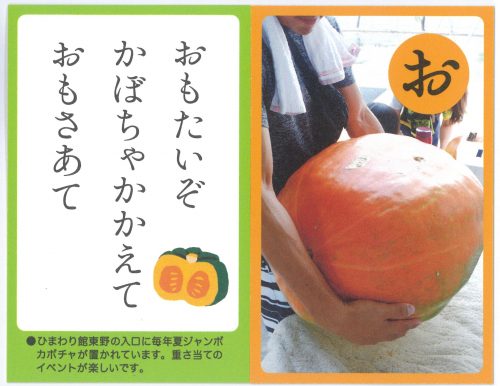 おもたいぞ
かぼちゃかかえて
おもさあて
●ひまわり館東野の入口に毎年夏ジャンボ
カボチャが置かれています。重さ当ての
イベントが楽しいです。
お